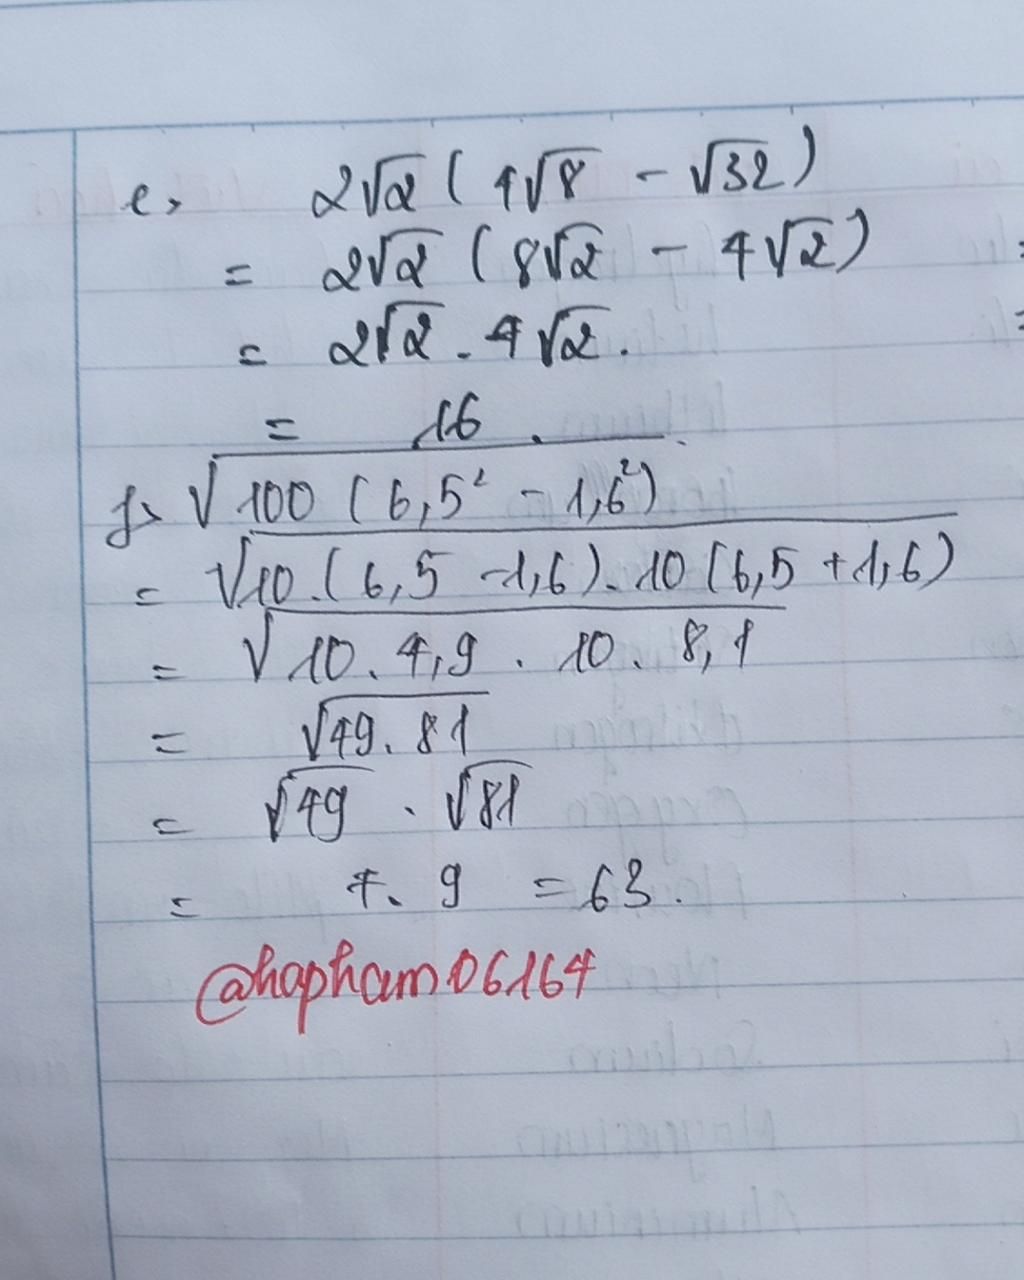 e, 2√2 ( 4√8 - √32)
= 2√2 ( 8√2 - 4√2)
= 2√2 . 4√2.
= 16.
f, √100 (6,5² - 1,6²)
= √10.(6,5 -1,6). 10 (6,5 +1,6)
= √10. 4,9 . 10. 8,1
= √49. 81
= √49 . √81
= 7. 9 = 63.
@hapham06164